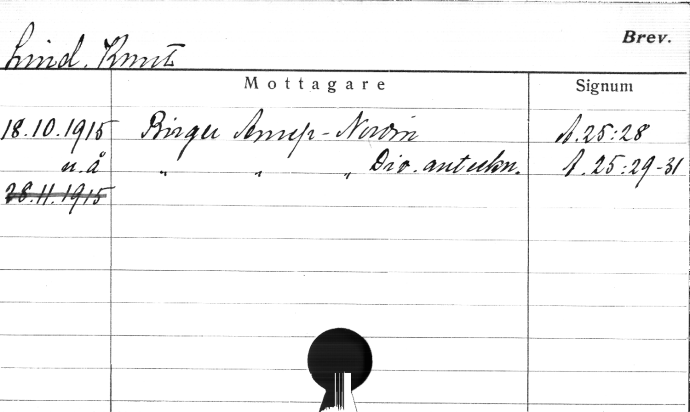 Brev.
Lind. Knut
Mottagare Signum
18.10.1915 Birger Anrep-Nordin A.25:28
u.å " " " Div. anteckn. A.25:29-31
28.11.1915